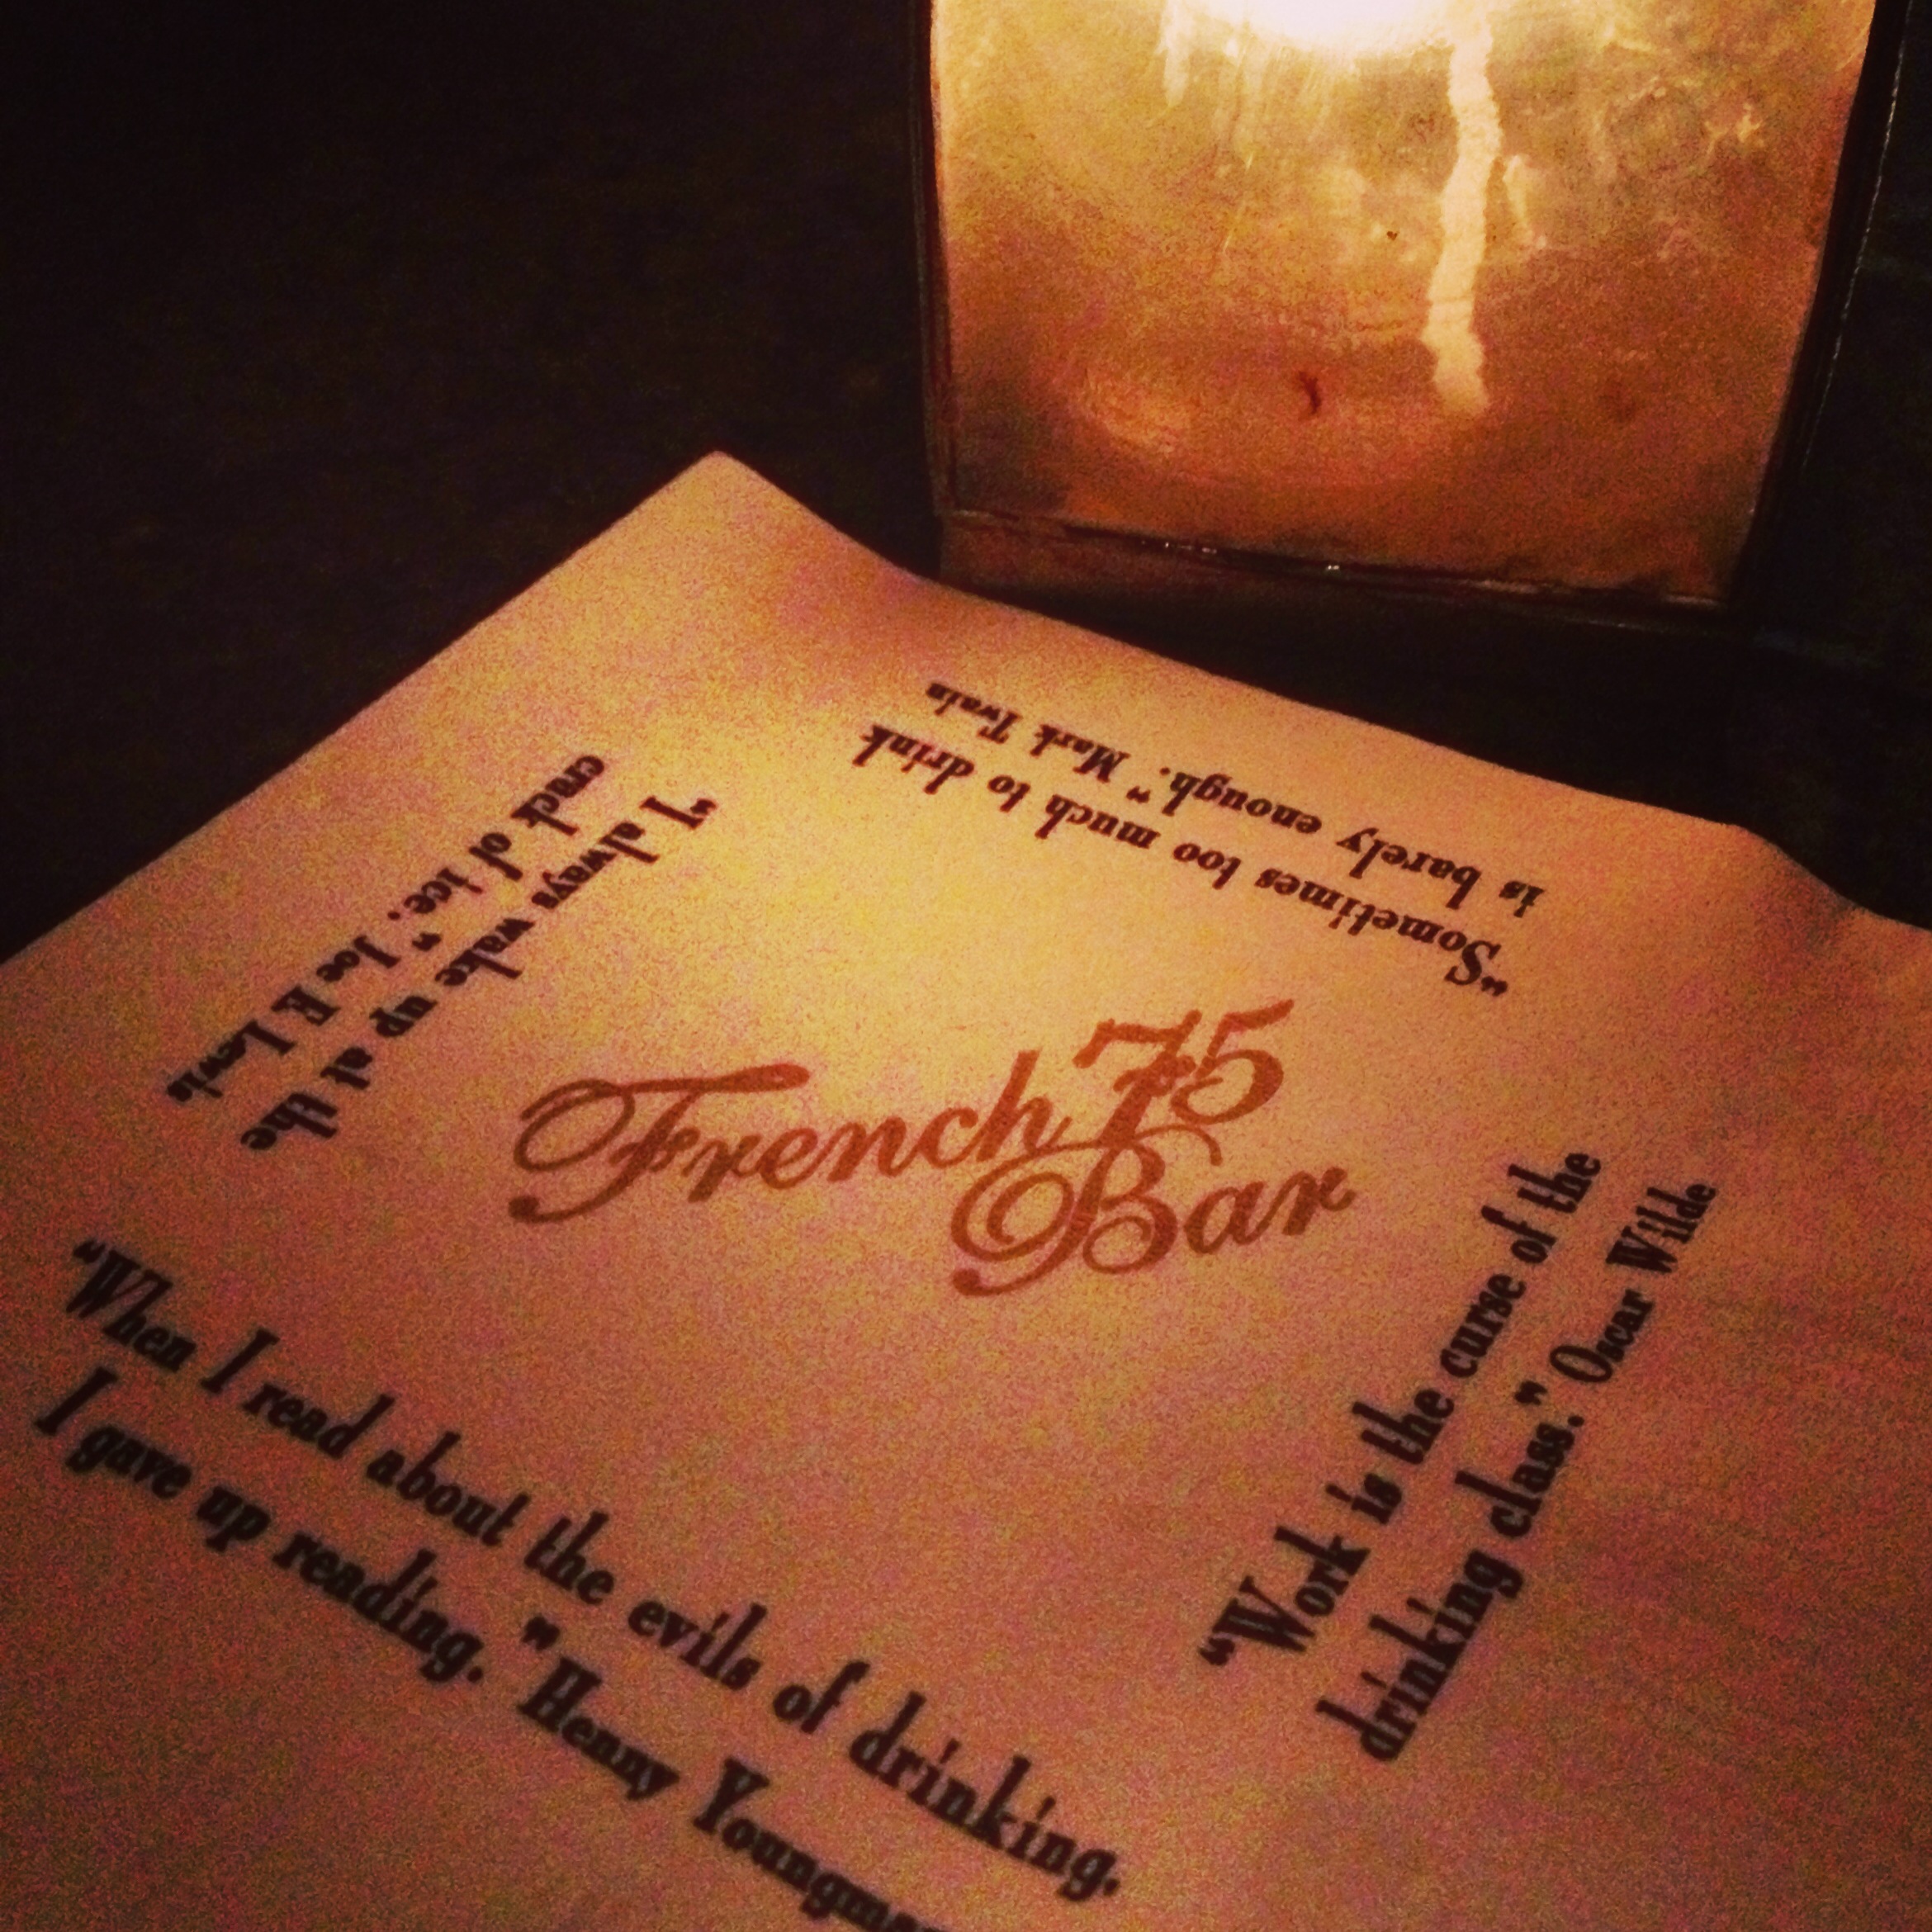 "Sometimes too much to drink
is barely enough." Mark Twain
"I always wake up at the
crack of ice." Joe E Lewis
French 75
Bar
"Work is the curse of the
drinking class." Oscar Wilde
"When I read about the evils of drinking,
I gave up reading." Henny